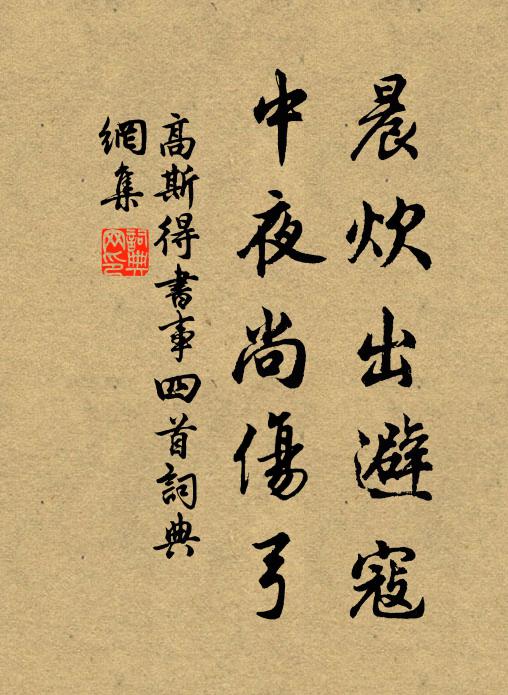 晨炊出避寇
中夜尚傷弓
高斯得書事四首詞典
網集
詞典網印